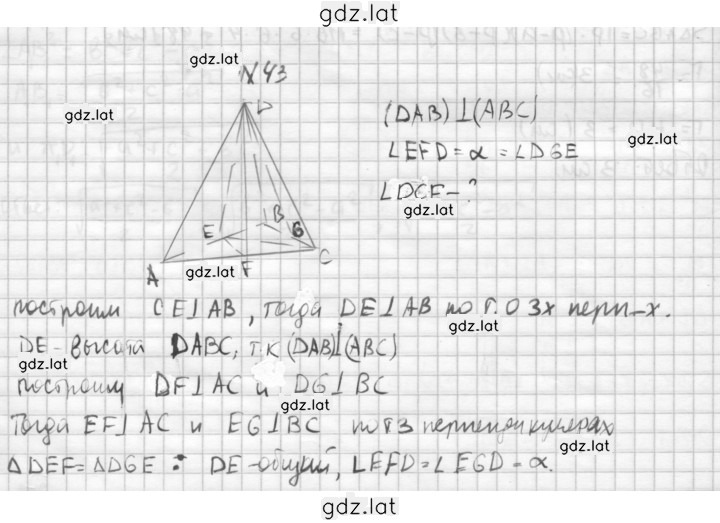 gdz.lat
gdz.lat
N 43
gdz.lat
D
(DAB)⊥(ABC)
gdz.lat
∠EFD=α=∠DGE
∠DCE-?
gdz.lat
E B G
A F C
gdz.lat
построим CE⊥AB, тогда DE⊥AB по т. о 3х перп-х.
gdz.lat
DE-высота DABC, т.к (DAB)⊥(ABC)
gdz.lat
построим DF⊥AC и DG⊥BC
gdz.lat
Тогда EF⊥AC и EG⊥BC по т 3 перпендикулярах
gdz.lat
△DEF=△DGE : DE-общий, ∠EFD=∠EGD=α.
gdz.lat